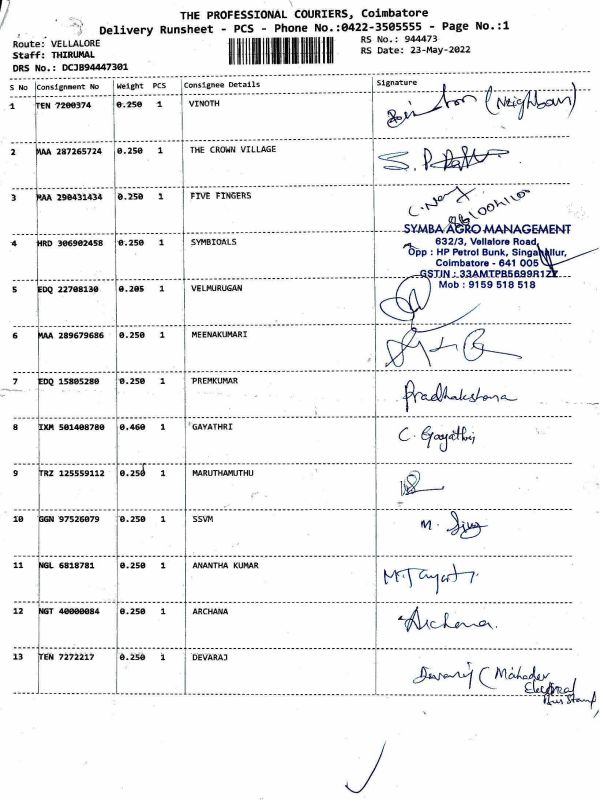 THE PROFESSIONAL COURIERS, Coimbatore
Delivery Runsheet - PCS - Phone No.:0422-3505555 - Page No.:1
Route: VELLALORE
Staff: THIRUMAL
DRS No.: DCJB94447301
RS No.: 944473
RS Date: 23-May-2022
S No Consignment No Weight PCS Consignee Details Signature
1 TEN 7200374 0.250 1 VINOTH (Neighbour)
2 MAA 287265724 0.250 1 THE CROWN VILLAGE
3 MAA 290431434 0.250 1 FIVE FINGERS
SYMBA AGRO MANAGEMENT
632/3, Vellalore Road,
Opp : HP Petrol Bunk, Singanallur,
Coimbatore - 641 005
GSTIN : 33AMTPB5699R1ZX
Mob : 9159 518 518
4 HRD 306902458 0.250 1 SYMBIOALS
5 EDQ 22708130 0.205 1 VELMURUGAN
6 MAA 289679686 0.250 1 MEENAKUMARI
7 EDQ 15805280 0.250 1 PREMKUMAR Pradhakshana
8 IXM 501408780 0.460 1 GAYATHRI C. Gayathri
9 TRZ 125559112 0.250 1 MARUTHAMUTHU
10 GGN 97526079 0.250 1 SSVM M.
11 NGL 6818781 0.250 1 ANANTHA KUMAR
12 NGT 40000084 0.250 1 ARCHANA Archana.
13 TEN 7272217 0.250 1 DEVARAJ Devaraj ( Mahadev
Electrical
Bus Stand